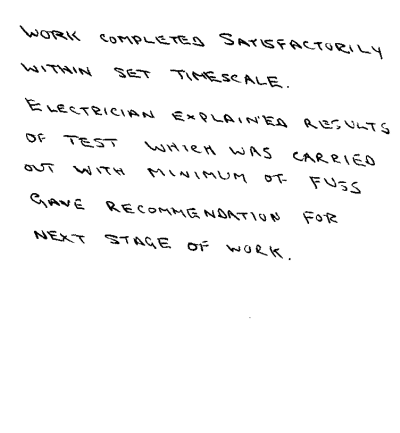 WORK COMPLETED SATISFACTORILY
WITHIN SET TIMESCALE.
ELECTRICIAN EXPLAINED RESULTS
OF TEST WHICH WAS CARRIED
OUT WITH MINIMUM OF FUSS
GAVE RECOMMENDATION FOR
NEXT STAGE OF WORK.